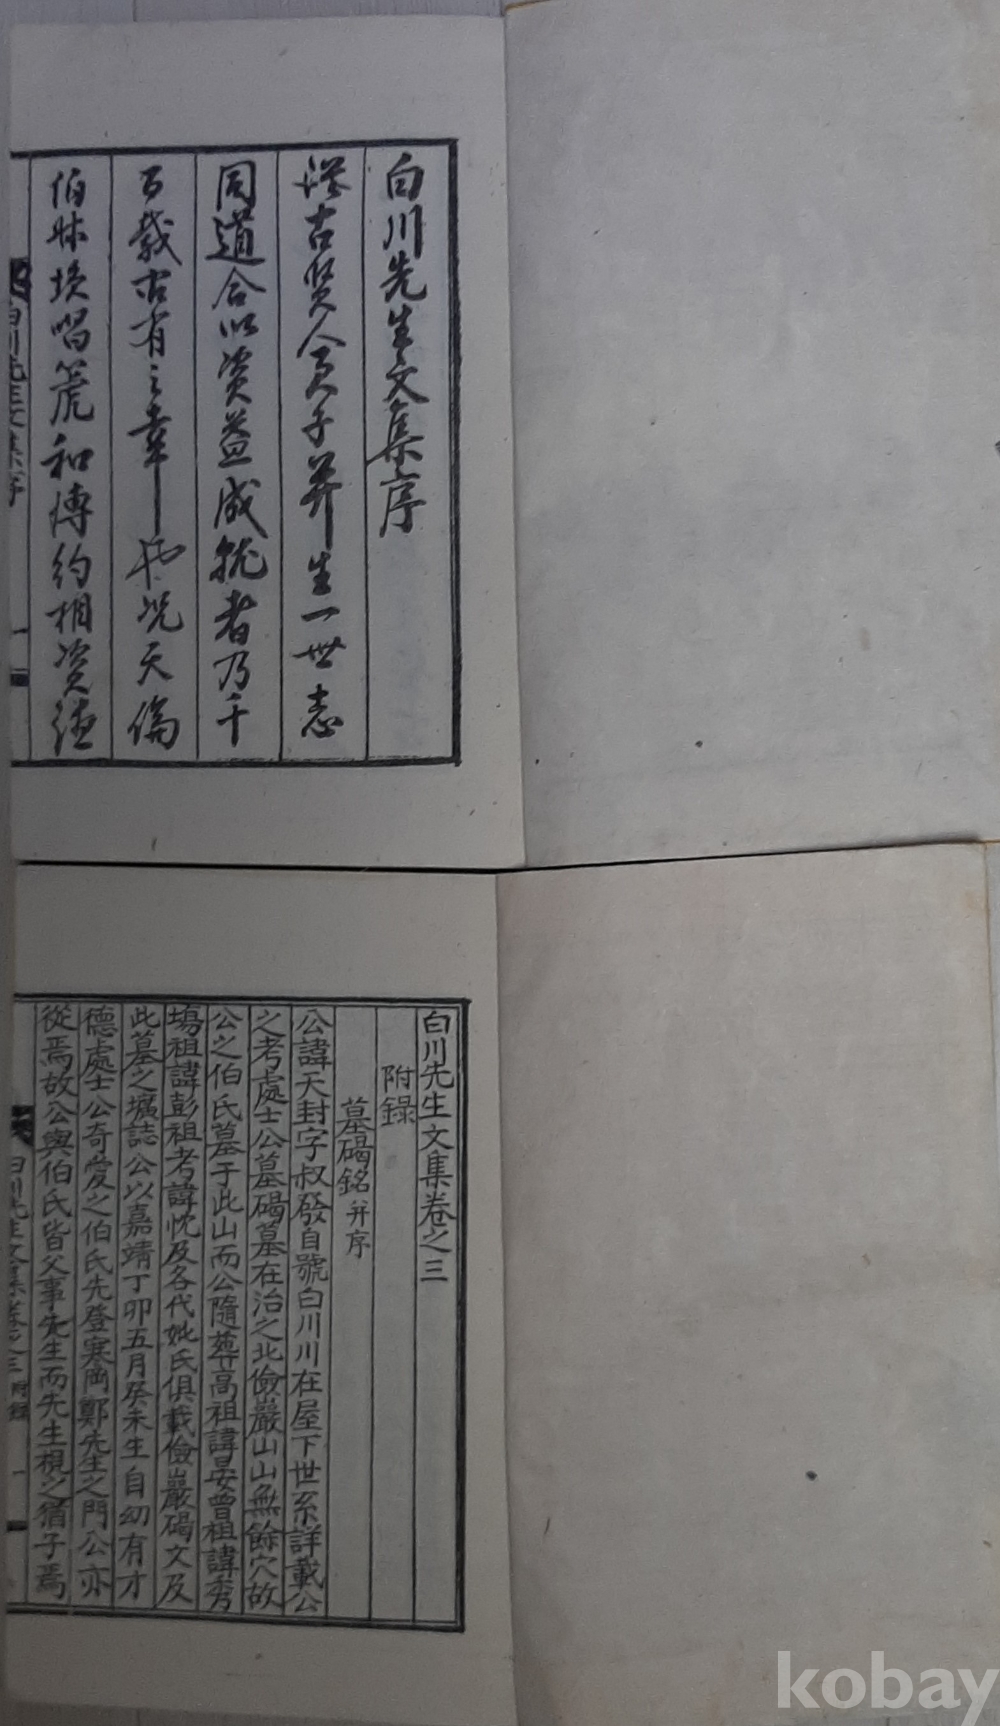 白川先生文集序
從古賢人君子並生一世志
同道合以資益成就者乃千
百載古有之幸一也况天倫
伯叔塤唱篪和博約相資德
白川先生文集序
一
白川先生文集卷之三
附錄
墓碣銘 幷序
公諱天封字叔發自號白川川在屋下世系詳載公
之考處士公墓碣墓在治之北儉巖山山無餘穴故
公之伯氏墓于此山而公隨葬高祖諱晏曾祖諱秀
塲祖諱彭祖考諱忱及各代妣氏俱載儉巖碣文及
此墓之壙誌公以嘉靖丁卯五月癸未生自幼有才
德處士公奇愛之伯氏先登寒岡鄭先生之門公亦
從焉故公與伯氏皆父事先生而先生視之猶子焉
白川先生文集卷之三 附錄
一
kobay